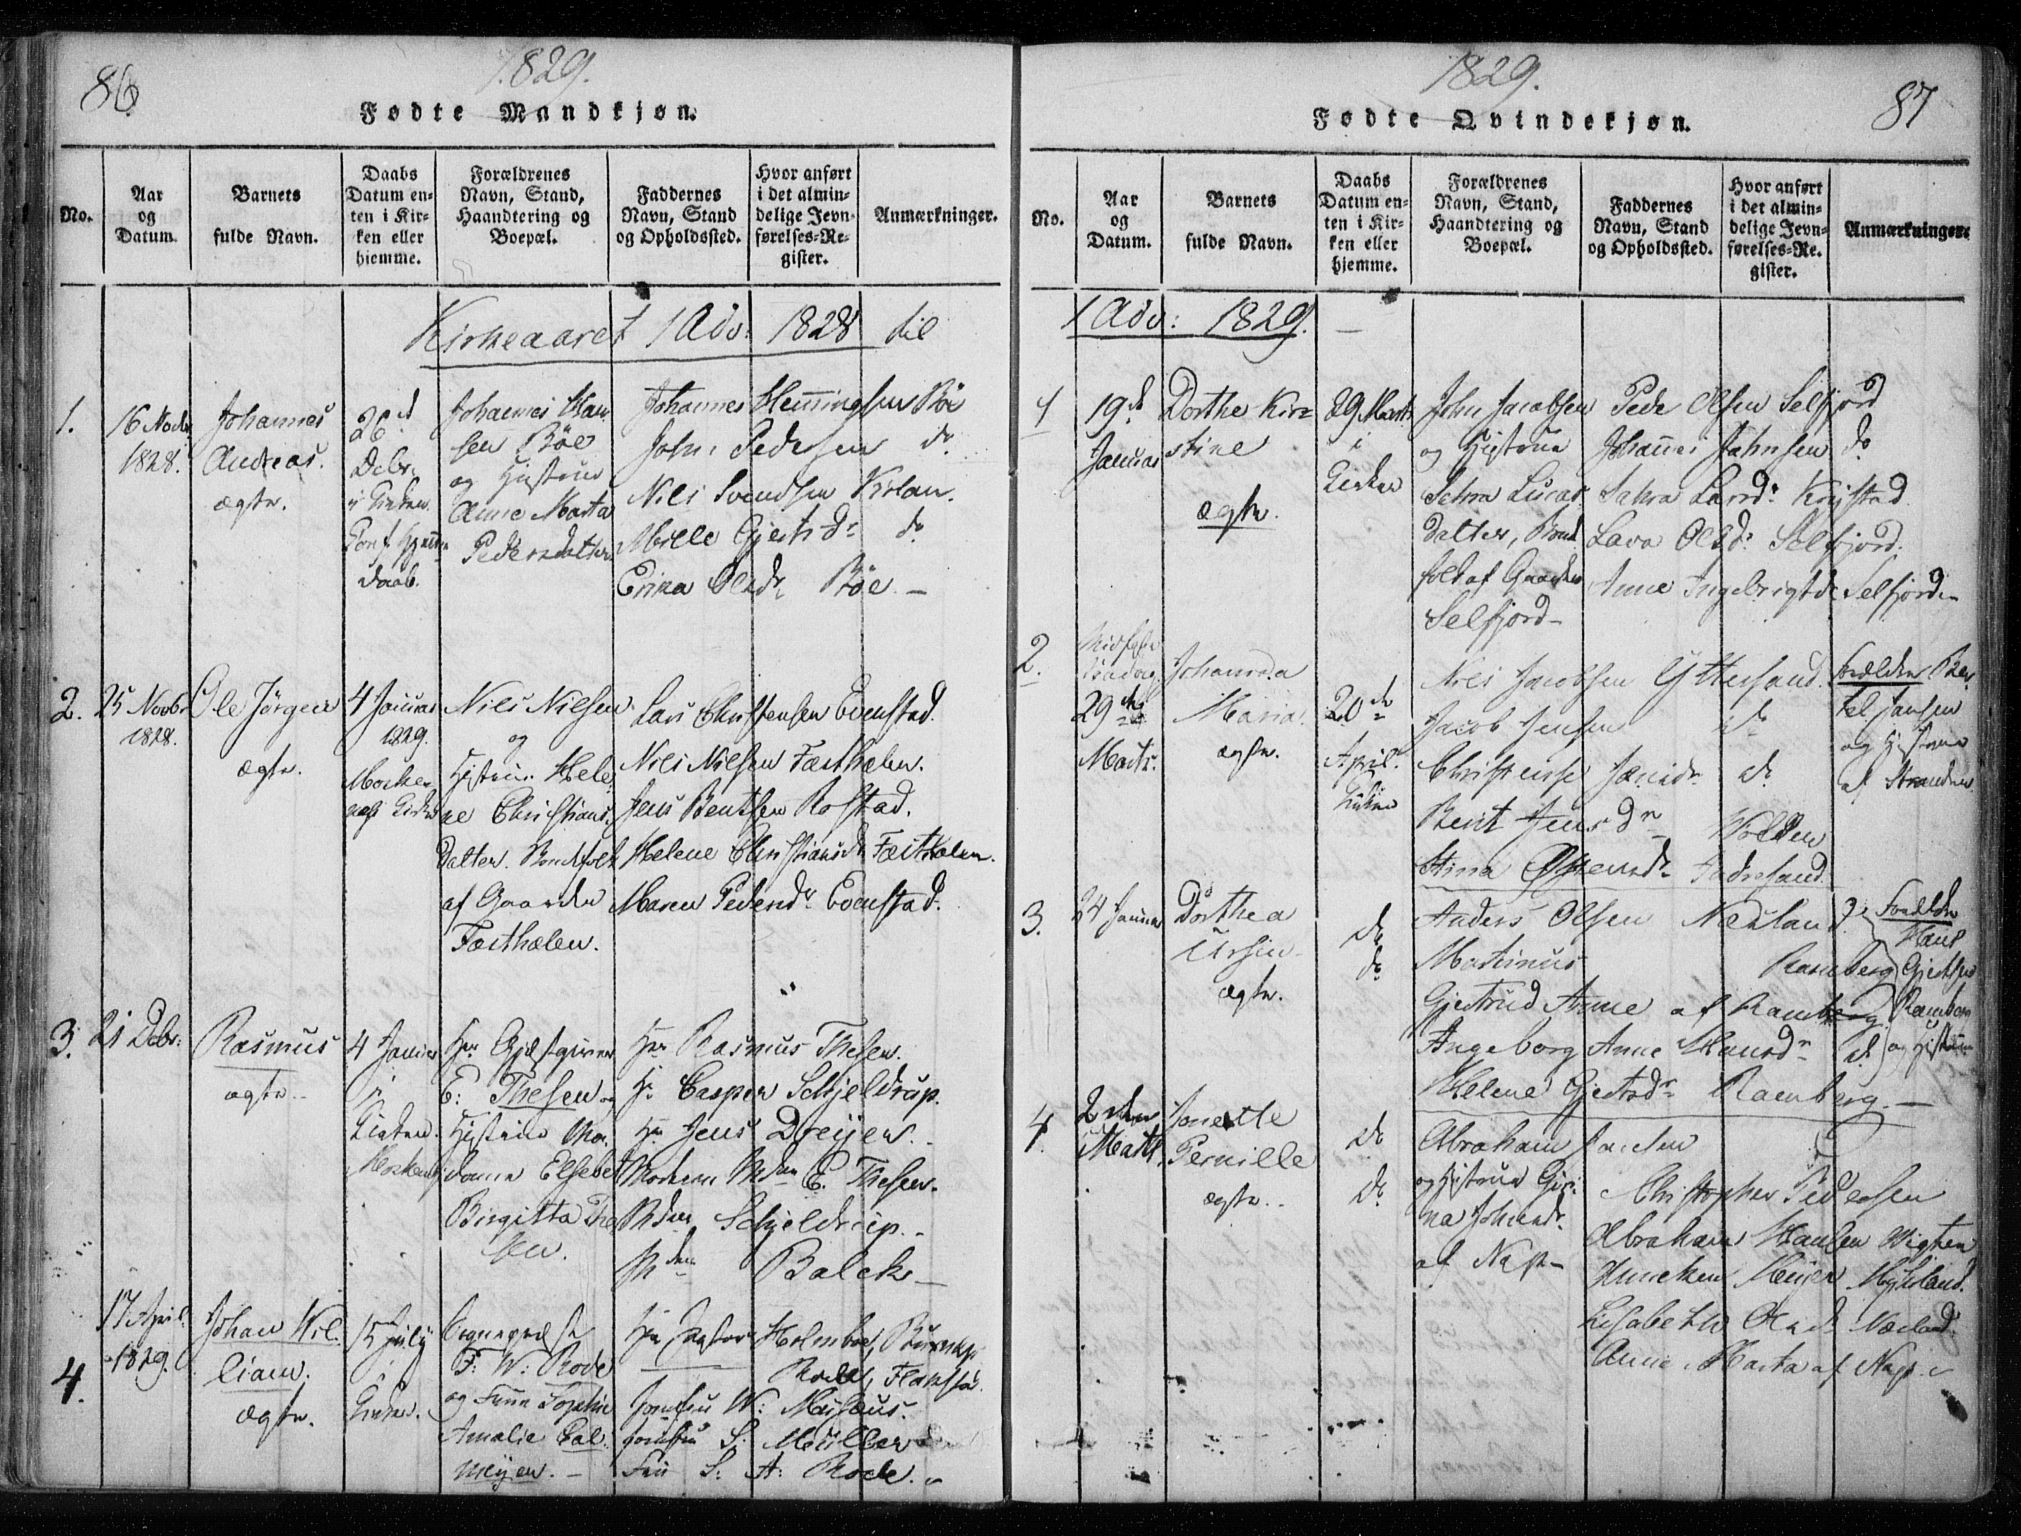 86
1829.
Fødte Mandkjøn.
No.
Aar og Datum.
Barnets fulde Navn.
Daabs Datum enten i Kirken eller hjemme.
Forældrenes Navn, Stand, Haandtering og Boepæl.
Faddernes Navn, Stand og Opholdssted.
Hvor anført i det almindelige Jevnførelses-Register.
Anmærkninger.
Kirkeaaret 1 Adv: 1828 til
1.
16 Novbr
1828.
Johannes
Andreas.
ægte.
26d
Debr.
i Kirken.
daab.
Johannes Han
sen Böe
og Hustrue
Anne Marta
Pedersdatter
Johannes Henningsen Böe
John Pedersen do
Nils Svendsen
Mille Gjertsdr do
Erika Olsdr Böe
2.
25 Novbr
1828.
Ole Jörgen
ægte.
4 Januar
1829.
Nils Nilsen
og
Hustrue Hele
ne Christians
datter. Bondefolk
af Gaarden
Færthælen.
Lars Christensen Evenstad.
Nils Nilsen Færthælen.
Jens Bentsen Rolstad.
Helene Christiansdr Færthælen.
Maren Pedersdr Evenstad.
3.
21 Debr:
Rasmus
ægte.
4 Januar
i
Kirken.
Hr Gjæstgiver
E: Thesen og
Hustrue Ma
dame Elsebet
Birgitta The
sen.
Hr Rasmus Thesen.
Hr Casper Schjeldrup.
Hr Jens Dreyer.
Moderen Mdm E. Thesen.
Mdm Schjeldrup.
Mdm Balcke
4.
17 April
1829.
Johan Wil
liam.
Ægte.
15 July
i
Kirken.
Sognepræst
F: W: Rode
og Frue Sophie
Amalie Cal
meyer.
Hr Pastor Holmboe,
Rode, Flakstad.
Jomfru W:
Jomfru S: Müller
Fru S: A: Rode.
1829.
87
Fødte Qvindekjøn.
No.
Aar og Datum.
Barnets fulde Navn.
Daabs Datum enten i Kirken eller hjemme.
Forældrenes Navn, Stand, Haandtering og Boepæl.
Faddernes Navn, Stand og Opholdssted.
Hvor anført i det almindelige Jevnførelses-Register.
Anmærkninger.
1 Adv: 1829.
1
19d
Januar
Dorthe Kir
stine
ægte.
29 Marts
i
Kirken
John Jacobsen
og Hustrue
Lucas
datter, Bonde
folk af Gaarden
Selfjord
Peder Olsen Selfjord
Johannes Johnsen do
Krystad
Lava Olsdr Selfjord.
Anne Ingebrigtdr Selfjord
2.
29de
Marts.
Johanna
Maria.
ægte.
20de
April.
Kirken
Nils Jacobsen Yttersand.
Jacob Jensen do
Christense Jensdr do
Berit Jensdr Volden
Stina
Forældre Ber
tel Jansen
og Hustrue
af Stranden
3.
24 Januar
Dorthea
Ursin
ægte.
do
do
Anders Olsen Nesland.
Martinus Ramberg
Gjertrud Anne af Ramberg
Ingeborg Anne Hansdr do
Helene Gjertsdr Ramberg.
Forældre
Hans
Gjertsen
Ramberg
og Hustrue
4.
2den
Marts
Jonette
Pernille
ægte.
do
do
Abraham Jansen
og Hustrue
af Nap
Christopher Pedersen
Abraham Hansen Vigten
Meyer Myhrland.
Lisabeth Olsdr Næsland.
Anne Marta af Nap